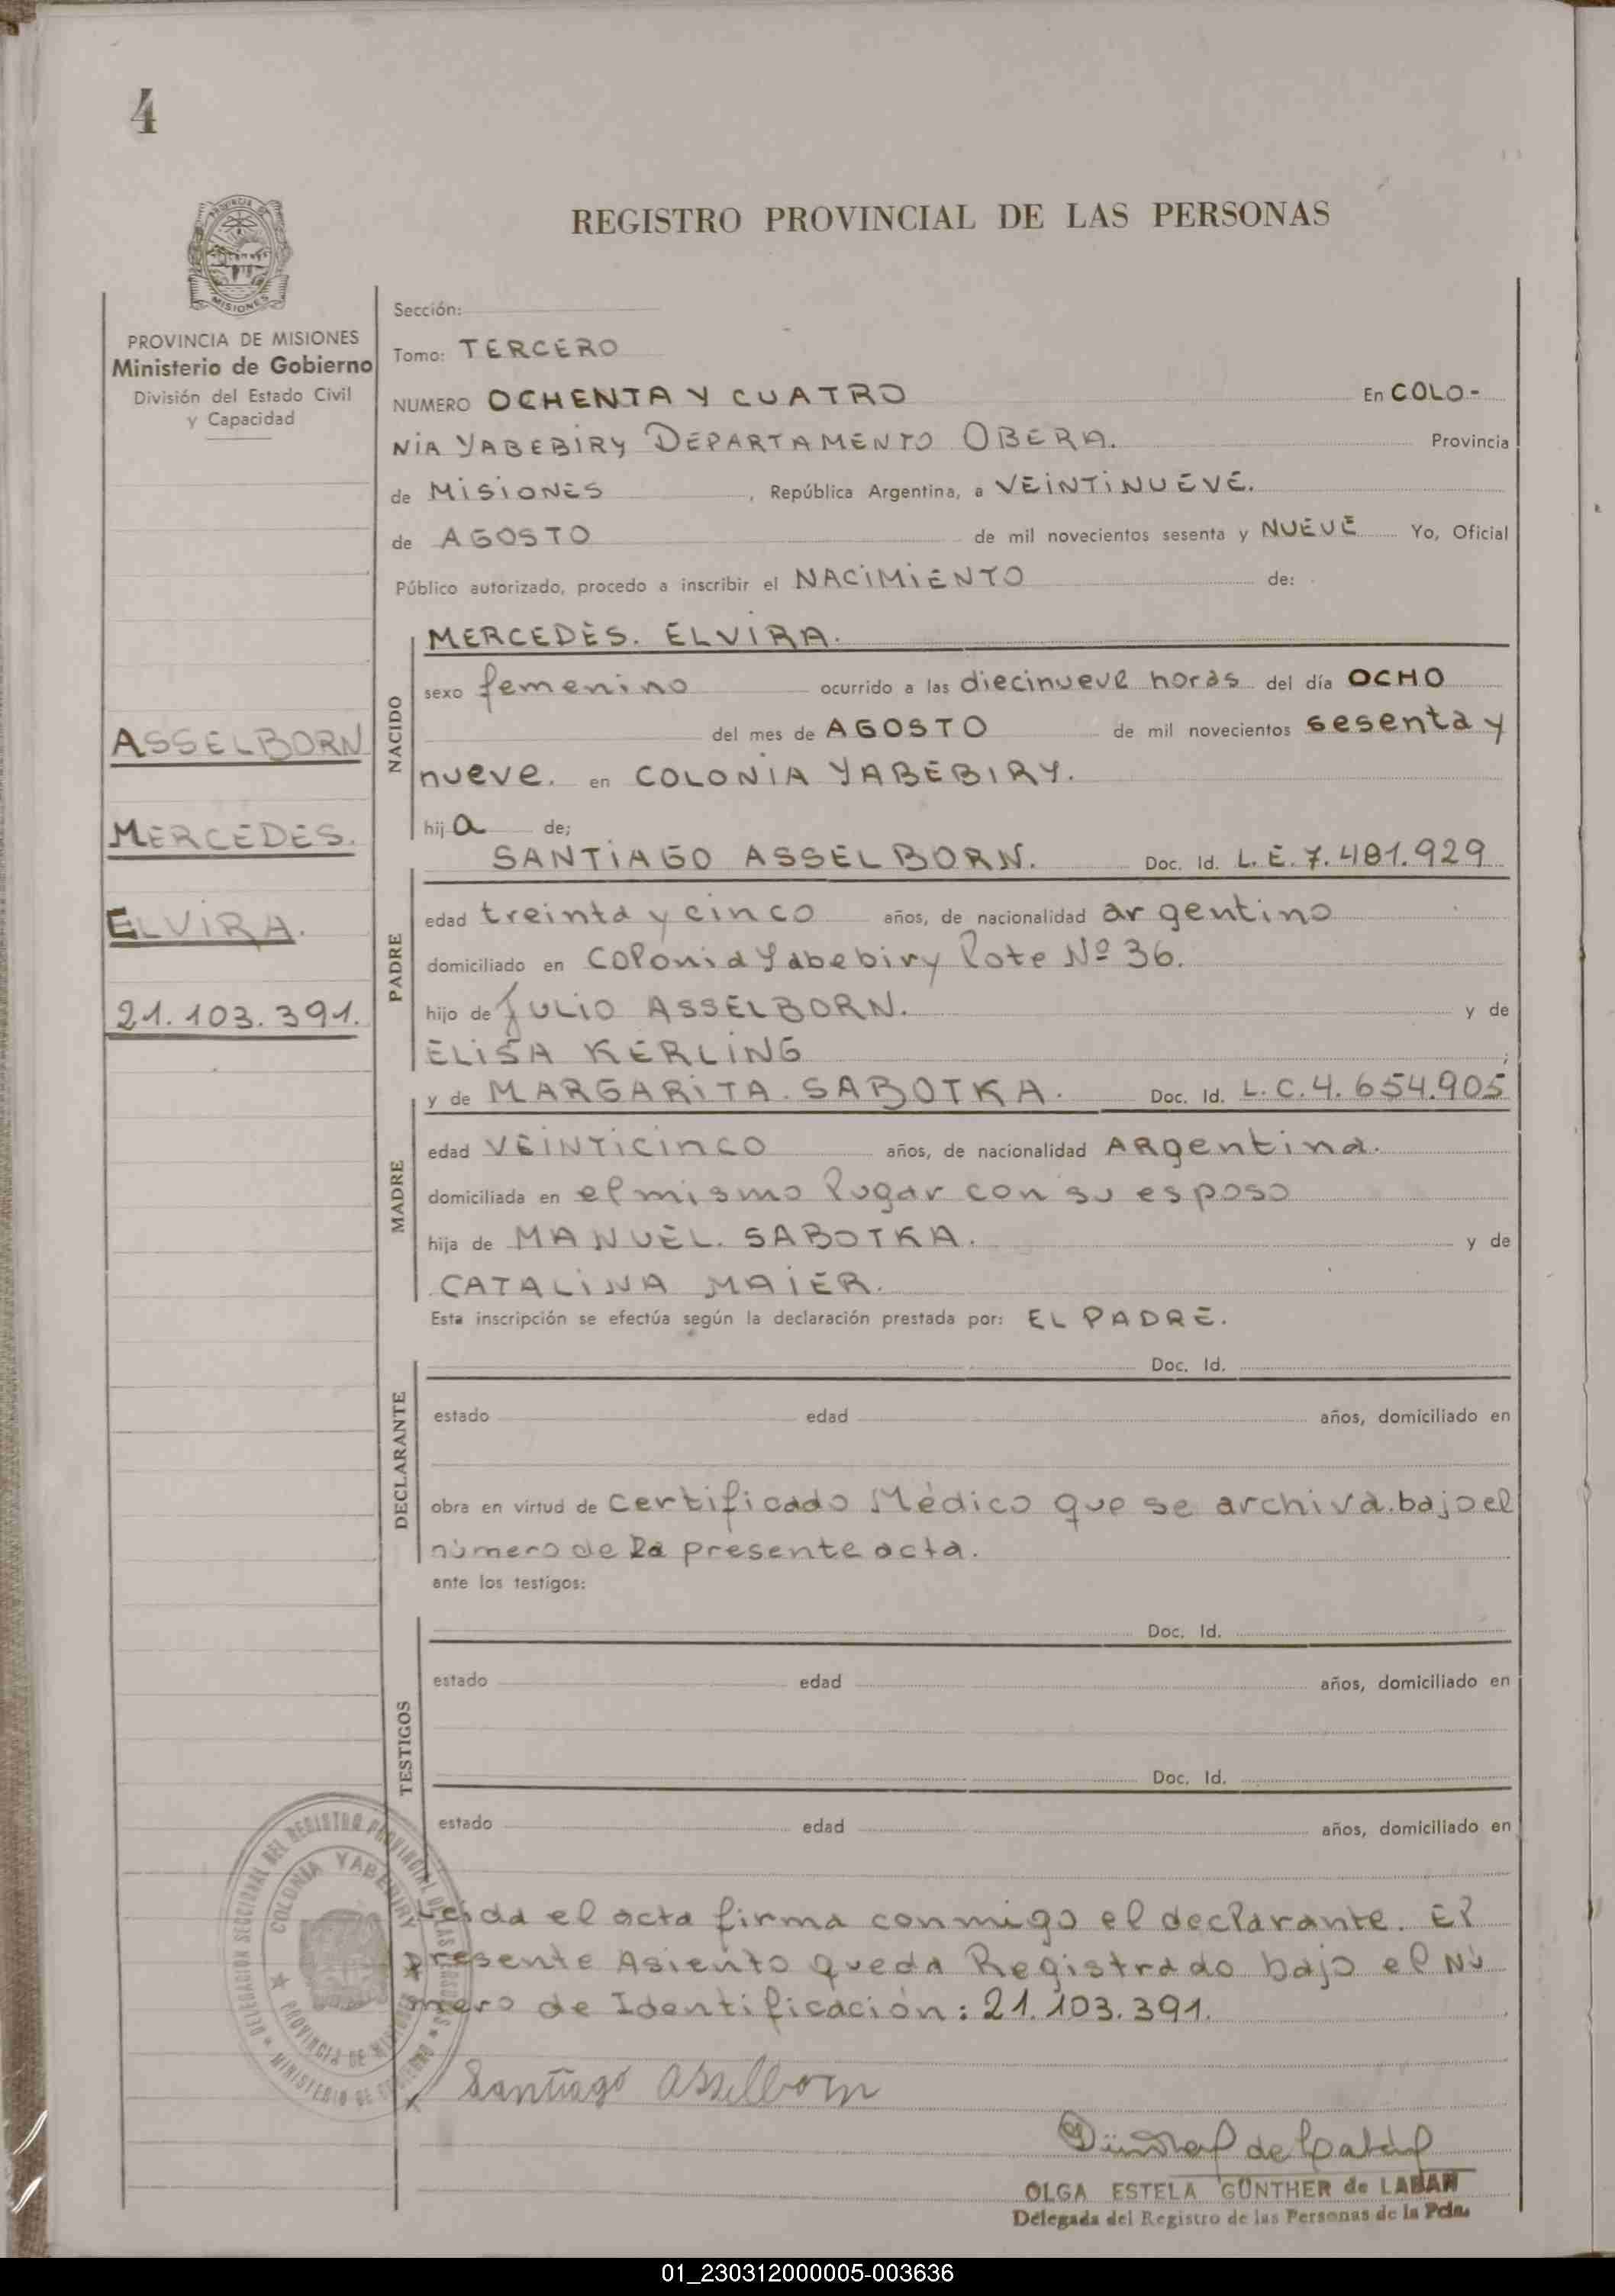 4
REGISTRO PROVINCIAL DE LAS PERSONAS
PROVINCIA DE MISIONES
Ministerio de Gobierno
División del Estado Civil
y Capacidad
Sección:
Tomo: TERCERO
NUMERO OCHENTA Y CUATRO En COLO-
NIA YABEBIRY DEPARTAMENTO OBERA. Provincia
de MISIONES, República Argentina, a VEINTINUEVE.
de AGOSTO de mil novecientos sesenta y NUEVE Yo, Oficial
Público autorizado, procedo a inscribir el NACIMIENTO de:
NACIDO
MERCEDES. ELVIRA.
sexo femenino ocurrido a las diecinueve horas del día OCHO
del mes de AGOSTO de mil novecientos sesenta y
nueve. en COLONIA YABEBIRY.
hija de;
ASSELBORN
MERCEDES.
ELVIRA.
21.103.391.
PADRE
SANTIAGO ASSELBORN. Doc. Id. L.E.7.481.929
edad treinta y cinco años, de nacionalidad argentino
domiciliado en Colonia Yabebiry lote Nº 36.
hijo de JULIO ASSELBORN. y de
ELISA KERLING;
MADRE
y de MARGARITA. SABOTKA. Doc. Id. L.C.4.654.905
edad VEINTICINCO años, de nacionalidad ARgentina.
domiciliada en el mismo lugar con su esposo
hija de MANUEL. SABOTKA. y de
CATALINA MAIER.
Esta inscripción se efectúa según la declaración prestada por: EL PADRE.
DECLARANTE
Doc. Id.
estado edad años, domiciliado en
obra en virtud de certificado Médico que se archiva.bajo el
número de la presente acta.
ante los testigos:
TESTIGOS
Doc. Id.
estado edad años, domiciliado en
Doc. Id.
estado edad años, domiciliado en
Leida el acta firma conmigo el declarante. El
presente Asiento queda Registrado bajo el Nú
mero de Identificación: 21.103.391.
DELEGACION SECCIONAL DEL REGISTRO PROVINCIAL DE LAS PERSONAS
COLONIA YABEBIRY
PROVINCIA DE MISIONES
MINISTERIO DE GOBIERNO
Santiago Asselborn
OLGA ESTELA GÜNTHER de LABAN
Delegada del Registro de las Personas de la Pcia.
01_230312000005-003636